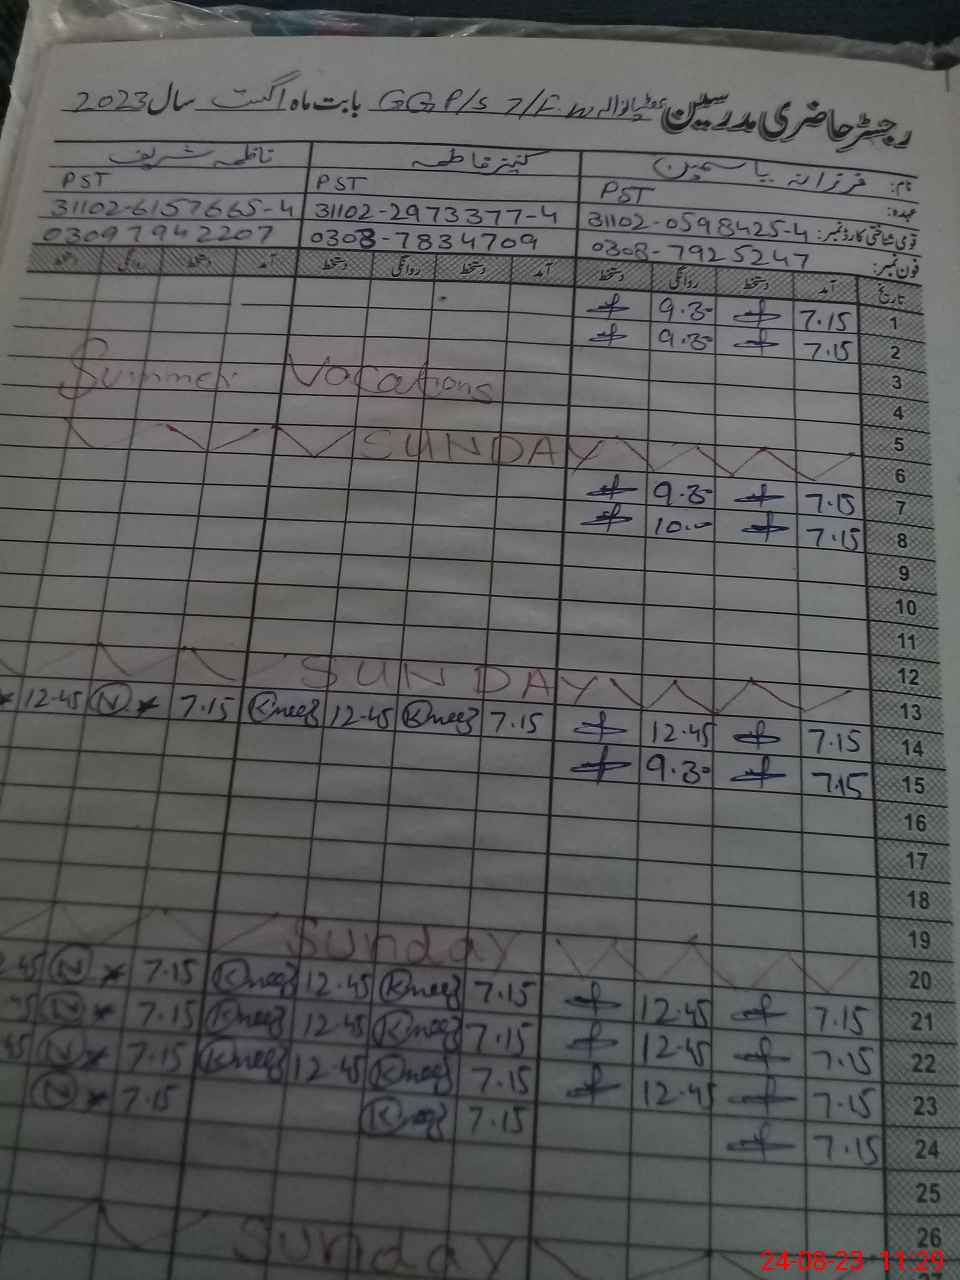 رجسٹر حاضری مدرسین GGP/S 7/F.W بابت ماہ اگست سال 2023
نام: فرزانہ یاسمین کنیز فاطمہ ناظمہ شریف
عہدہ: PST PST PST
قومی شناختی کارڈ نمبر: 31102-0598425-4 31102-2973377-4 31102-6157665-4
فون نمبر: 0308-7925247 0308-7834709 03097942207
تاریخ آمد دستخط روانگی دستخط آمد دستخط روانگی دستخط آمد دستخط روانگی دستخط
1 7.15 9.30
2 7.15 9.30
3
Summer Vacations
4
5
6 SUNDAY
7 7.15 9.30
8 7.15 10.00
9
10
11
12
13 SUNDAY
14 7.15 12.45 7.15 Kneez 12.45 Kneez 7.15 N 12.45
15 7.15 9.30
16
17
18
19
20 Sunday
21 7.15 12.45 7.15 Kneez 12.45 Kneez 7.15 N
22 7.15 12.45 7.15 Kneez 12.45 Kneez 7.15 N
23 7.15 12.45 7.15 Kneez 12.45 Kneez 7.15 N
24 7.15 7.15 Kneez 7.15 N
25
26
Sunday
24-08-23 11:29